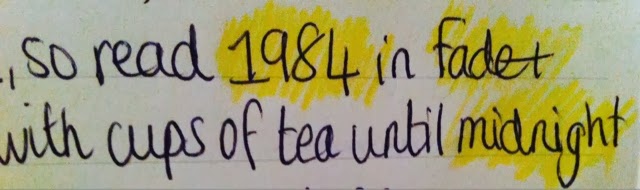 , so read 1984 in fadet
with cups of tea until midnight